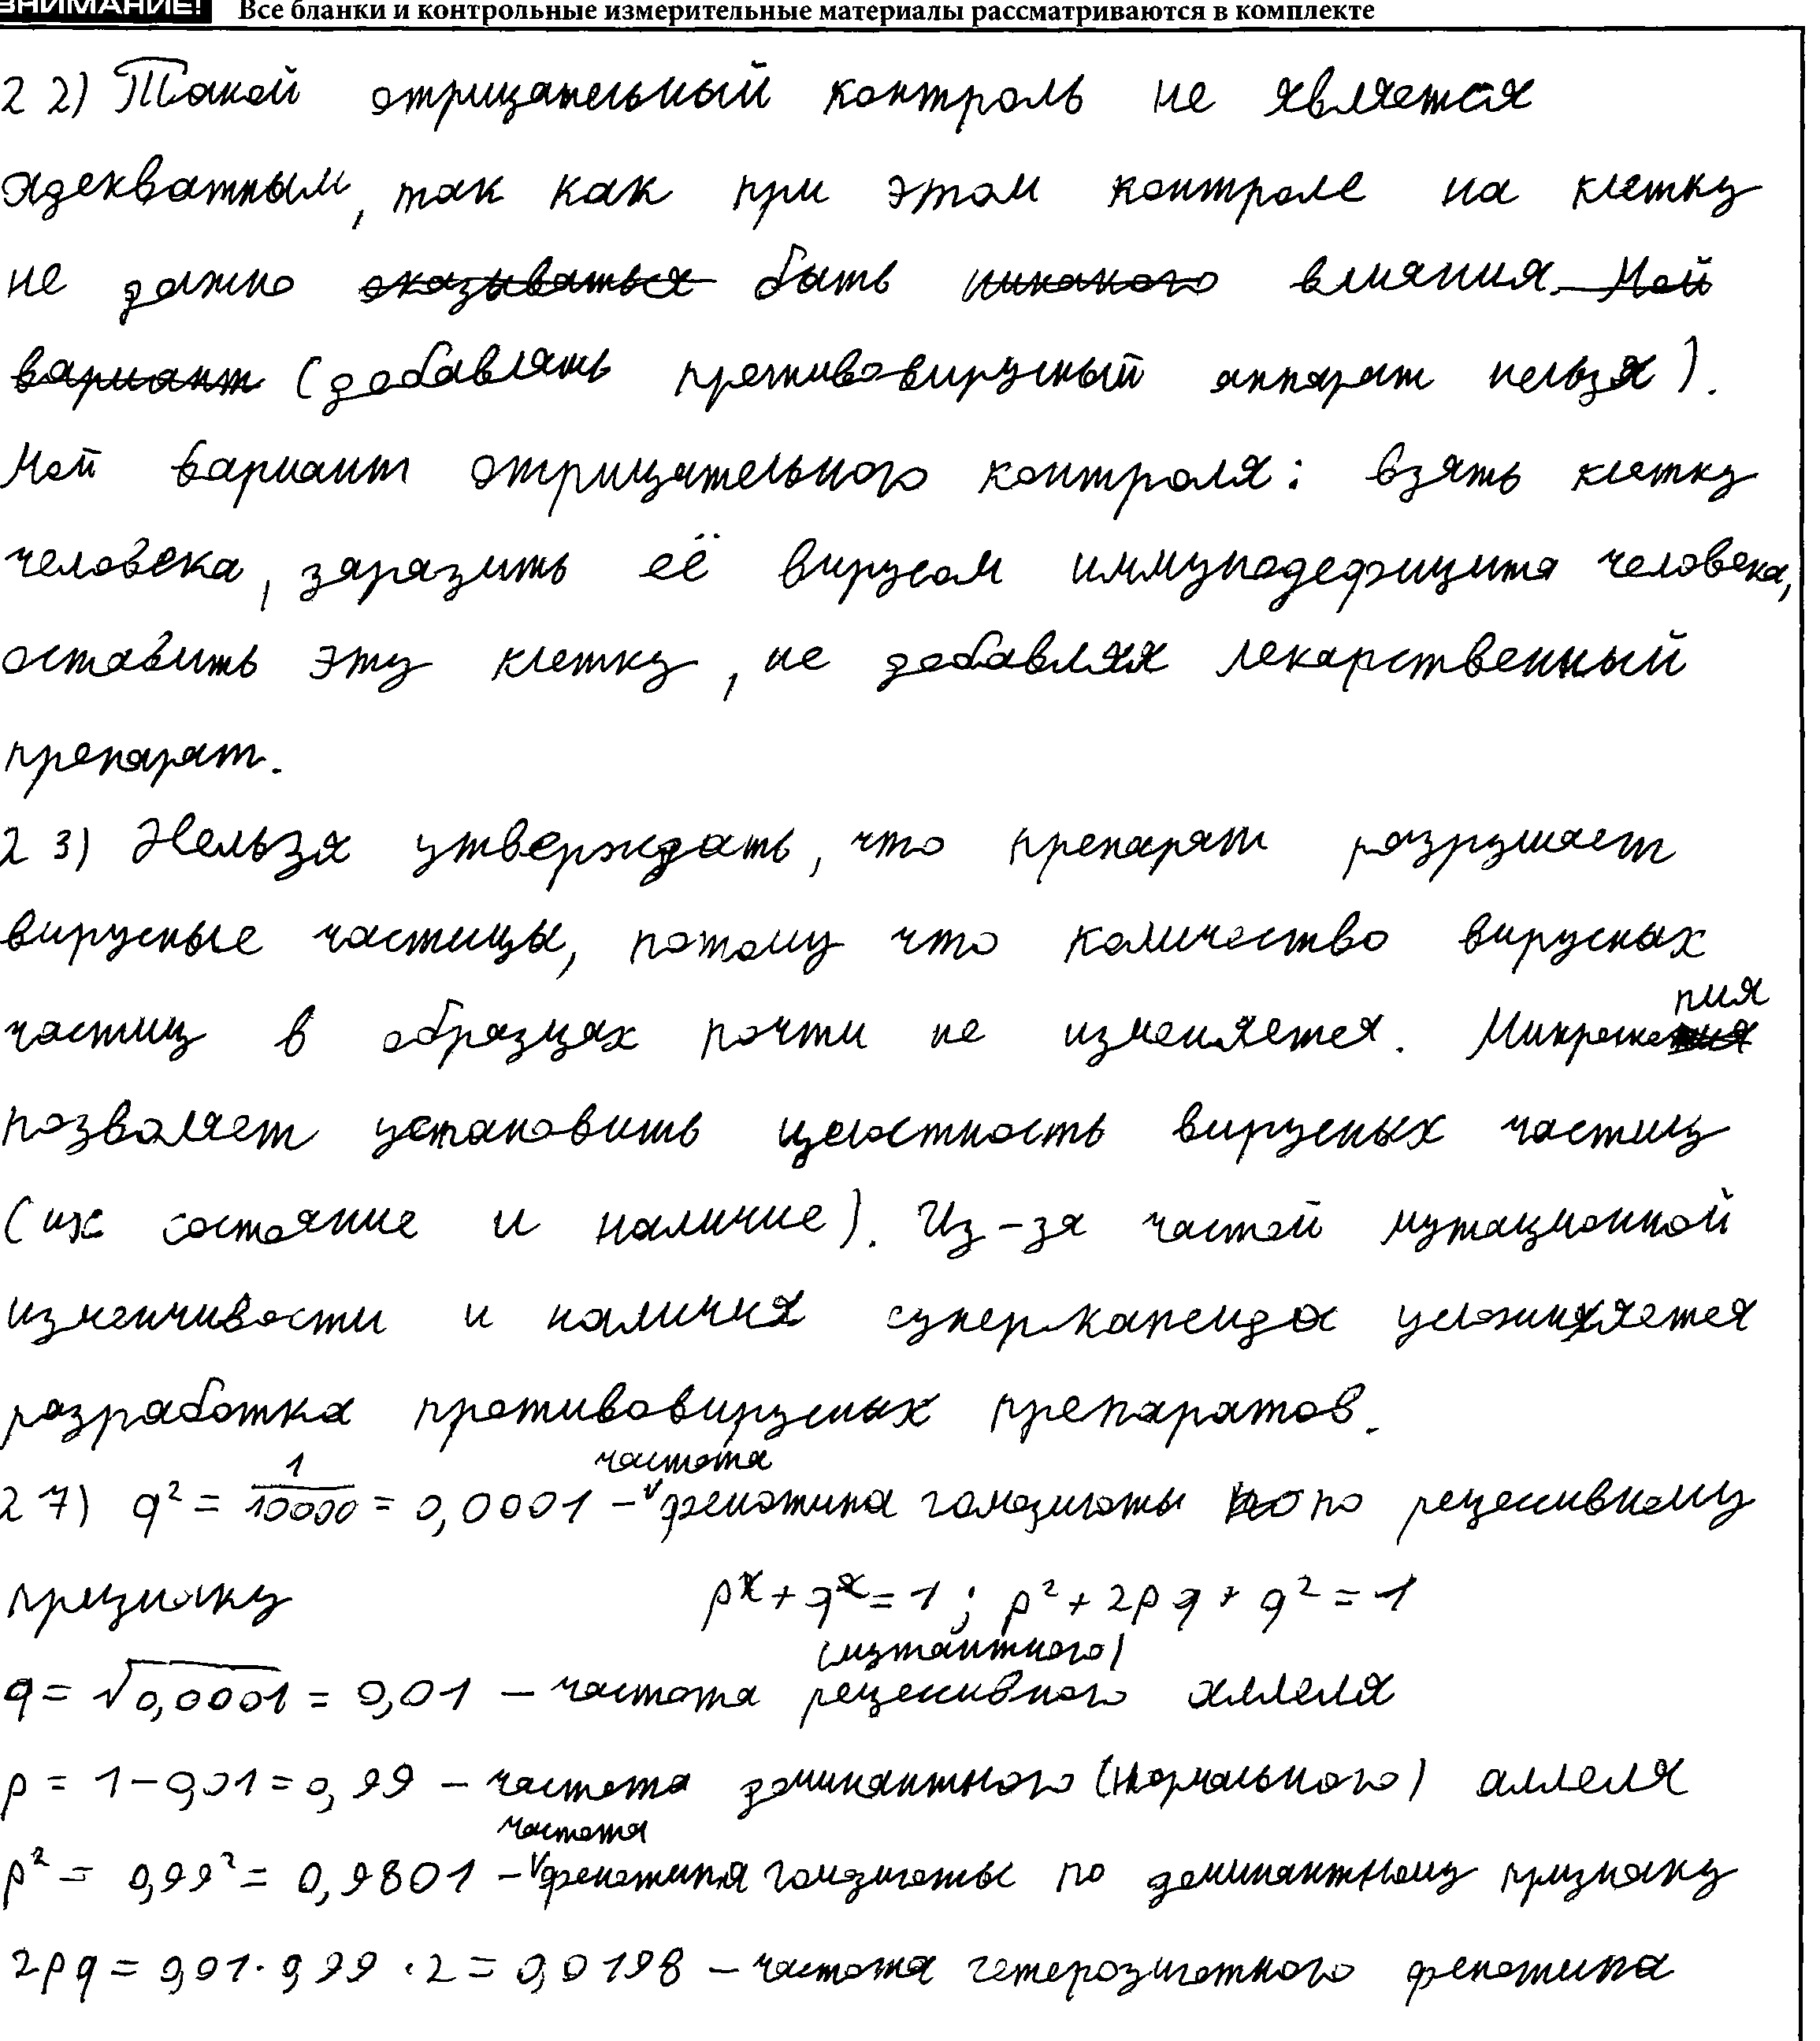 ВНИМАНИЕ! Все бланки и контрольные измерительные материалы рассматриваются в комплекте
22) Такой отрицательный контроль не является
адекватным, так как при этом контроле на клетку
не должно оказываться быть никакого влияния. Мой
вариант (добавлять противовирусный аппарат нельзя).
Мой вариант отрицательного контроля: взять клетку
человека, заразить её вирусом иммунодефицита человека,
оставить эту клетку, не добавляя лекарственный
препарат.
23) Нельзя утверждать, что препарат разрушает
вирусные частицы, потому что количество вирусных
частиц в образцах почти не изменяется. Микроскопия
позволяет установить целостность вирусных частиц
(их состояние и наличие). Из-за частой мутационной
изменчивости и наличия суперкапсида усложняется
разработка противовирусных препаратов.
27) q² = 1/10000 = 0,0001 – частота фенотипа гомозиготы по рецессивному
признаку p + q = 1 ; p² + 2pq + q² = 1
(мутантного)
q = √0,0001 = 0,01 – частота рецессивного аллеля
p = 1 – 0,01 = 0,99 – частота доминантного (нормального) аллеля
p² = 0,99² = 0,9801 – частота фенотипа гомозиготы по доминантному признаку
2pq = 0,01 · 0,99 · 2 = 0,0198 – частота гетерозиготного фенотипа